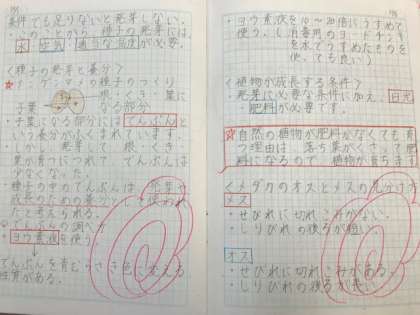 条件でも足りないと発芽しない。
・このことから、種子の発芽には
水、空気、適当な温度が必要。
<種子の発芽と養分>
種子のつくり
根・くき・葉に
子葉
なる部分
・子葉になる部分には でんぷん と
いう養分がふくまれています。
・しかし、発芽して、根・くき・
葉が育つにつれて、でんぷんは
少なくなった。
・種子の中のでんぷんは、発芽や
成長のための養分として使われ
たと考えられる。
でんぷんの調べ方
ヨウ素液を使う
↓
でんぷんを青むらさき色に変える
性質がある。
・ヨウ素液を10〜20倍にうすめて
使う。(消毒用のヨードチンキ
を水でうすめたものを
使っても良い)
<植物が成長する条件>
・発芽に必要な条件に加え、日光
・肥料が必要です。
自然の植物が肥料がなくても育
つ理由は、落ち葉がくさって肥
料になるので、植物が育ちます
<メダカのオスとメスの見分け方>
メス
・せびれに切れこみがない。
・しりびれの後ろが短い。
オス
・せびれに切れこみがある。
・しりびれの後ろが長い